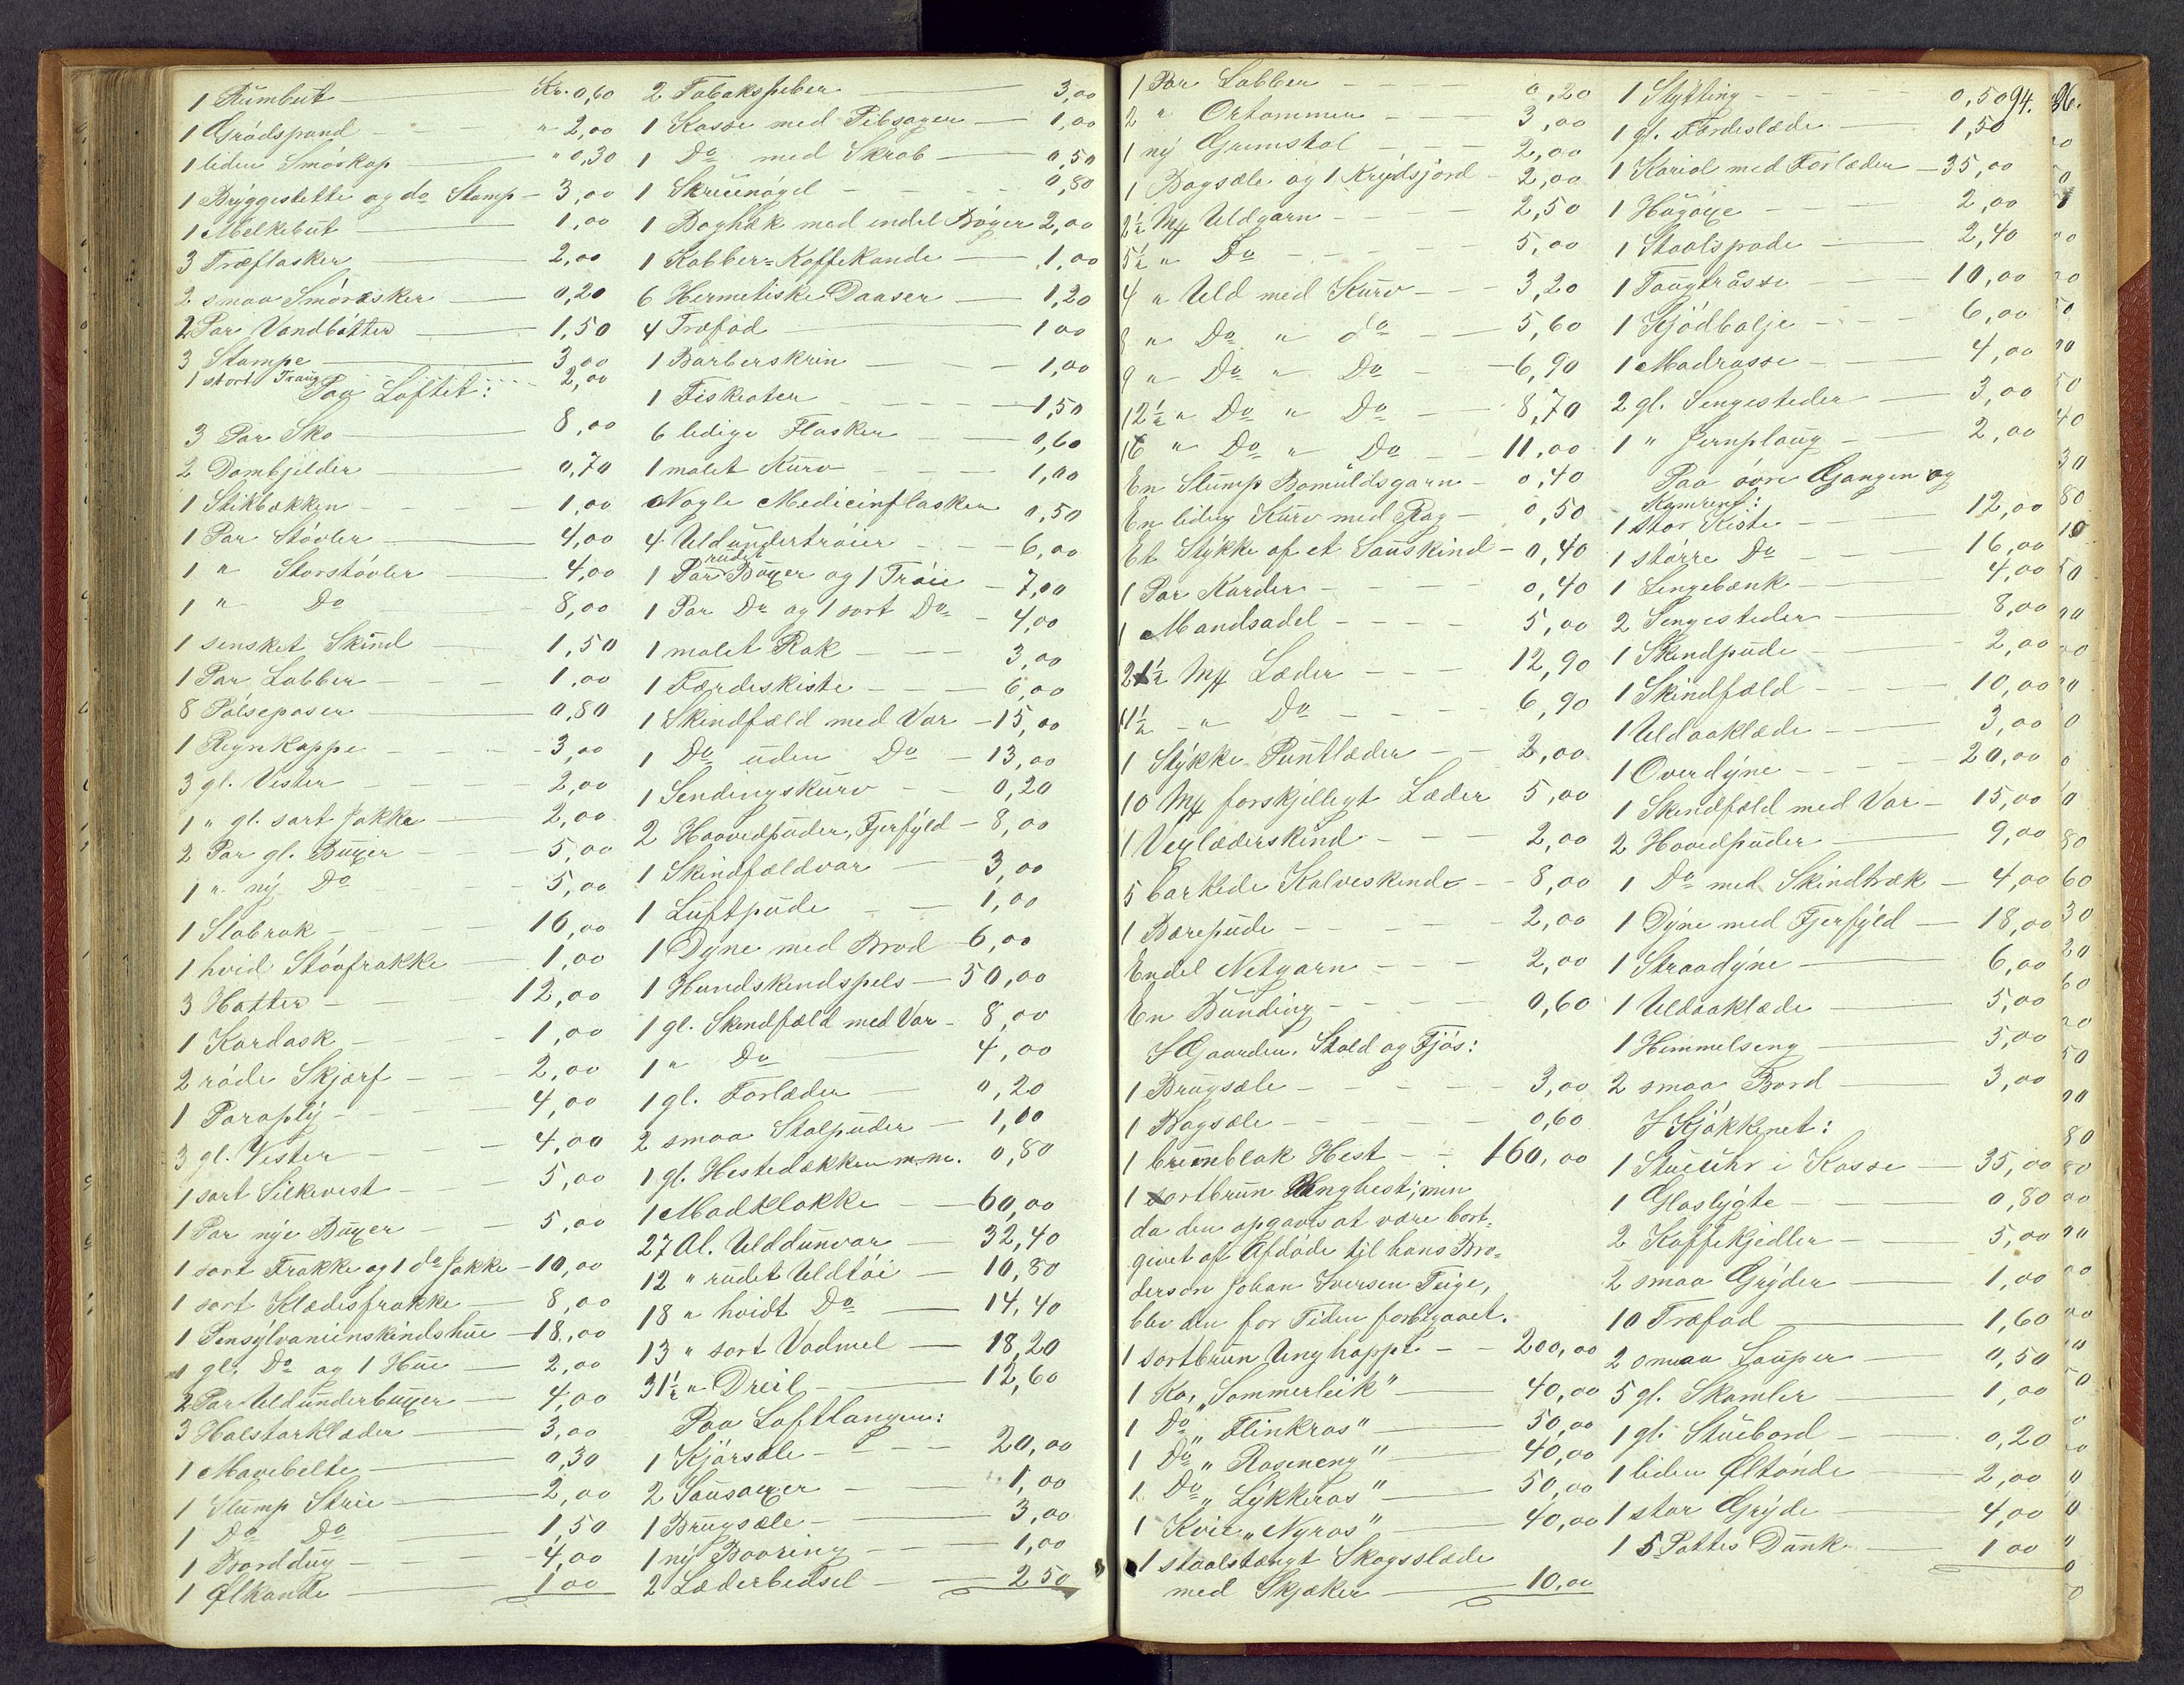 1 Rumbut Kr. 0,60
1 Grödspand " 2,00
1 liden Smörkop " 0,30
1 Bryggestette og do Stamp 3,00
1 Melkebut 1,00
3 Træflasker 2,00
2 smaa Smöræsker 0,20
2 Par Vandbötter 1,50
3 Stampe 3,00
1 stort Traug 2,00
Paa Loftet:
3 Par Sko 8,00
2 Dombjelder 0,70
1 Stikbækken 1,00
1 Par Stövler 4,00
1 " Storstövler 4,00
1 " Do 8,00
1 sensket Skind 1,50
1 Par Labber 1,00
8 Pölseposer 0,80
1 Regnkappe 3,00
3 gl. Vester 2,00
1 " gl. sort Jakke 2,00
2 Par gl. Buxer 5,00
1 " ny Do 5,00
1 Slobrok 16,00
1 hvid Stövfrakke 1,00
3 Hatter 12,00
1 Kardask 1,00
2 röde Skjærf 2,00
1 Paraply 4,00
3 gl. Vester 4,00
1 sort Silkevest 5,00
1 Par nye Buxer 5,00
1 sort Frakke og 1 do Jakke 10,00
1 sort Klædesfrakke 8,00
1 Pensylvanienskindshue 18,00
1 gl. Do og 1 Hue 2,00
2 Par Uldunderbuxer 4,00
3 Halstørklæder 3,00
1 Mavebelte 0,30
1 Stump Strie 2,00
1 Do Do 1,50
1 Borddug 4,00
1 Ølkande 1 00
2 Tobakspiber 3,00
1 Kasse med Pibsager 1,00
1 Do med Skrab 0,50
1 Skruenögel 0,80
1 Boghæk med endel Böger 2,00
1 Kobber-Kaffekande 1,00
6 Hermetiske Daaser 1,20
4 Træfad 1 00
1 Barberskrin 1,00
1 Fiskroter 1,50
6 ledige Flasker 0,60
1 malet Kurv 1,00
Nogle Medicinflasker 0,50
4 Uldundertröier 6,00
1 Par rudet Buxer og 1 Tröie 7,00
1 Par Do og 1 sort Do 4,00
1 malet Rok 3,00
1 Færdeskiste 6,00
1 Skindfæld med Var 15,00
1 Do uden Do 13,00
1 Sendingskurv 0,20
2 Hovedpuder, Fjerfyld 8,00
1 Skindfældvar 3,00
1 Luftpude 1,00
1 Dyne med Brod 6,00
1 Hundskindspels 50,00
1 gl. Skindfæld med Var 8,00
1 " Do 4,00
1 gl. Forlæder 0,20
2 smaa Stolpuder 1,00
1 gl. Hestedækken m.m. 0,80
1 Madklokke 60,00
27 Al. Ulddunvar 32,40
12 " rudet Uldtöi 10,80
18 " hvidt Do 14,40
13 " sort Vadmel 18,20
31½ " Dreil 12,60
Paa Loftlangen:
1 Kjörsæle 20,00
2 Sausaxer 1,00
1 Brugsæle 3,00
1 ny Booring 1,00
2 Læderbedsel 2 50
1 Par Labber 0,20
2 " Ortommer 3,00
1 ny Grimstol 2,00
1 Bogsæle og 1 Krydsjord 2,00
2½ Mk Uldgarn 2,50
5½ " Do 5,00
4 " Uld med Kurv 3,20
8 " Do " do 5,60
9 " Do " Do 6,90
12½ " Do " Do 8,70
16 " Do " Do 11,00
En Stump Bomuldsgarn 0,40
En liden Kurv med Rag 0,50
Et Stykke af et Sauskind 0,40
1 Par Karder 0,40
1 Mandsadel 5,00
21½ Mk Læder 12,90
11½ " Do 6,90
1 Stykke Puntlæder 2,00
10 Mk forskjelligt Læder 5,00
1 Veglæderskind 2,00
5 barkede Kalveskind 8,00
1 Børepude 2,00
Endel Netgarn 2,00
En Bunding 0,60
I Gaarden, Stald og Fjös:
1 Brugsæle 3,00
1 Bogsæle 0,60
1 brunblak Hest 160,00
1 sortbrun Unghest; men
da den opgaves at være bort-
givet af Afdöde til hans Bro-
derson Johan Iversen Teige,
blev den for Tiden forbigaaet.
1 sortbrun Unghoppe 200,00
1 Ko, "Sommerleik" 40,00
1 Do "Flinkros" 50,00
1 Do "Roseneng" 40,00
1 Do "Lykkeros" 50,00
1 Kvie "Nyros" 40,00
1 staalstængt Skogsslæde
med Skjæker 10,00
94.
96.
1 Stytting 0,50
1 gl. Færdeslæde 1,50
1 Kariol med Forlæder 35,00
1 Hugöxe 2,00
1 Staalspade 2,40
1 Taugtrösse 10,00
1 Kjödbalje 6,00
1 Madrasse 4,00
2 gl. Sengesteder 3,00
1 " Jernploug 2,00
Paa övre Gangen og
Kamrene:
1 stor Kiste 12,00
1 större Do 16,00
1 Sengebænk 4,00
2 Sengesteder 8,00
1 Skindpude 2,00
1 Skindfæld 10,00
1 Uldaaklæde 3,00
1 Overdyne 20,00
1 Skindfæld med Var 15,00
2 Hovedpuder 9,00
1 Do med Skindtræk 4,00
1 Dyne med Fjerfyld 18,00
1 Straadyne 6,00
1 Uldaaklæde 5,00
1 Himmelseng 5,00
2 smaa Bord 3,00
I Kjökkenet:
1 Stueuhr i Kasse 35,00
1 Glaslygte 0,80
2 Kaffekjedler 5,00
2 smaa Gryder 1,00
10 Træfad 1,60
2 smaa Sauper 0,50
5 gl. Skamler 1,00
1 gl. Stuebord 0,20
1 liden Øltönde 2,00
1 stor Gryde 4,00
1 5 Pottes Dunk 1 00